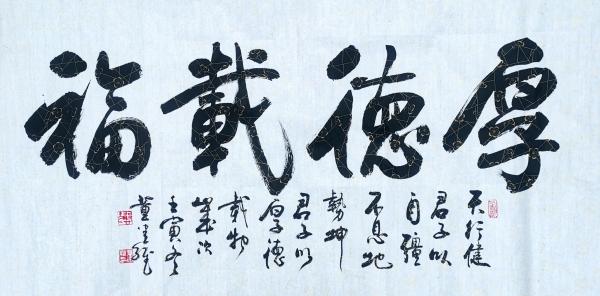 厚德載福
天行健
君子以
自疆
不息地
勢坤
君子以
厚德
載物
歲次
壬寅冬